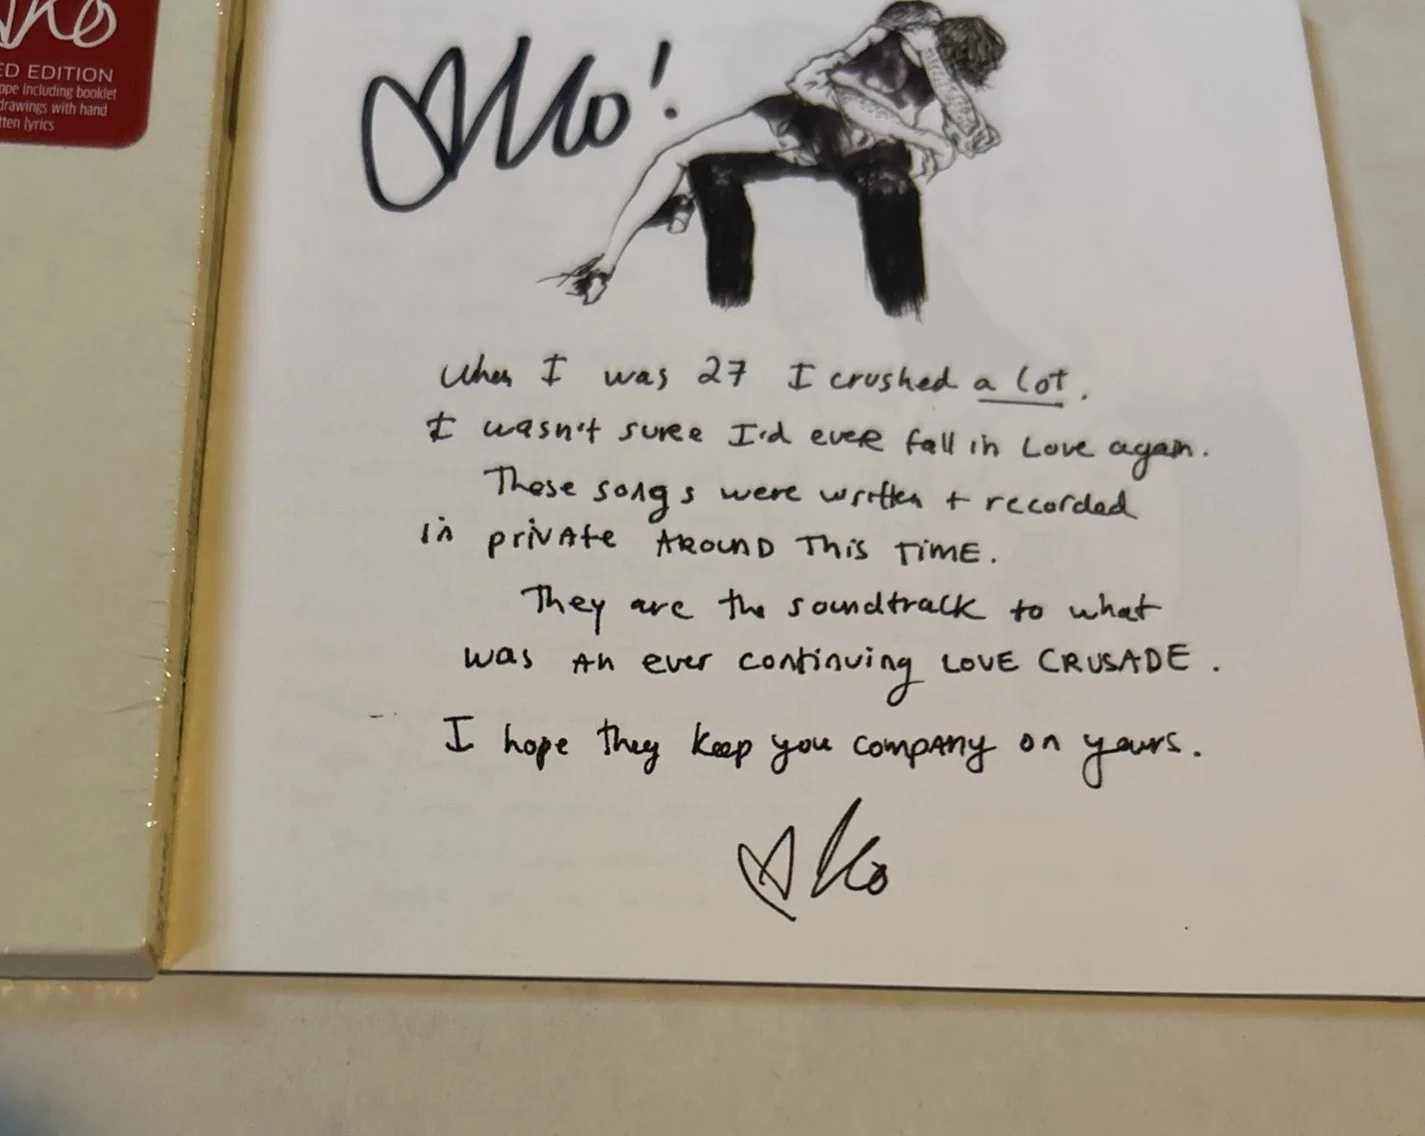 KO
ED EDITION
ope including booklet
drawings with hand
tten lyrics
KO!
When I was 27 I crushed a lot.
I wasn't sure I'd ever fall in Love again.
These songs were written + recorded
in private AROUND THIS TIME.
They are the soundtrack to what
was an ever continuing LOVE CRUSADE.
I hope they keep you company on yours.
KO